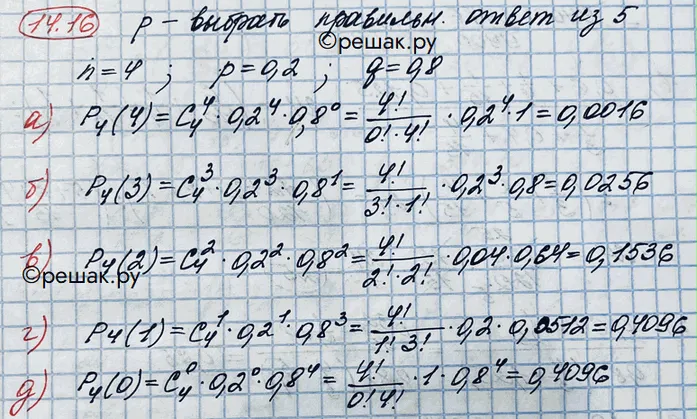 14.16 p – выбрать правильн. ответ из 5
©решак.ру
n=4 ; p=0,2 ; q=0,8
а) P₄(4)=C₄⁴·0,2⁴·0,8⁰= 4!/(0!·4!) ·0,2⁴·1=0,0016
б) P₄(3)=C₄³·0,2³·0,8¹= 4!/(3!·1!) ·0,2³·0,8=0,0256
в) P₄(2)=C₄²·0,2²·0,8²= 4!/(2!·2!) ·0,04·0,64=0,1536
©решак.ру
г) P₄(1)=C₄¹·0,2¹·0,8³= 4!/(1!3!) ·0,2·0,0512=0,4096
д) P₄(0)=C₄⁰·0,2⁰·0,8⁴= 4!/(0!4!) ·1·0,8⁴=0,4096